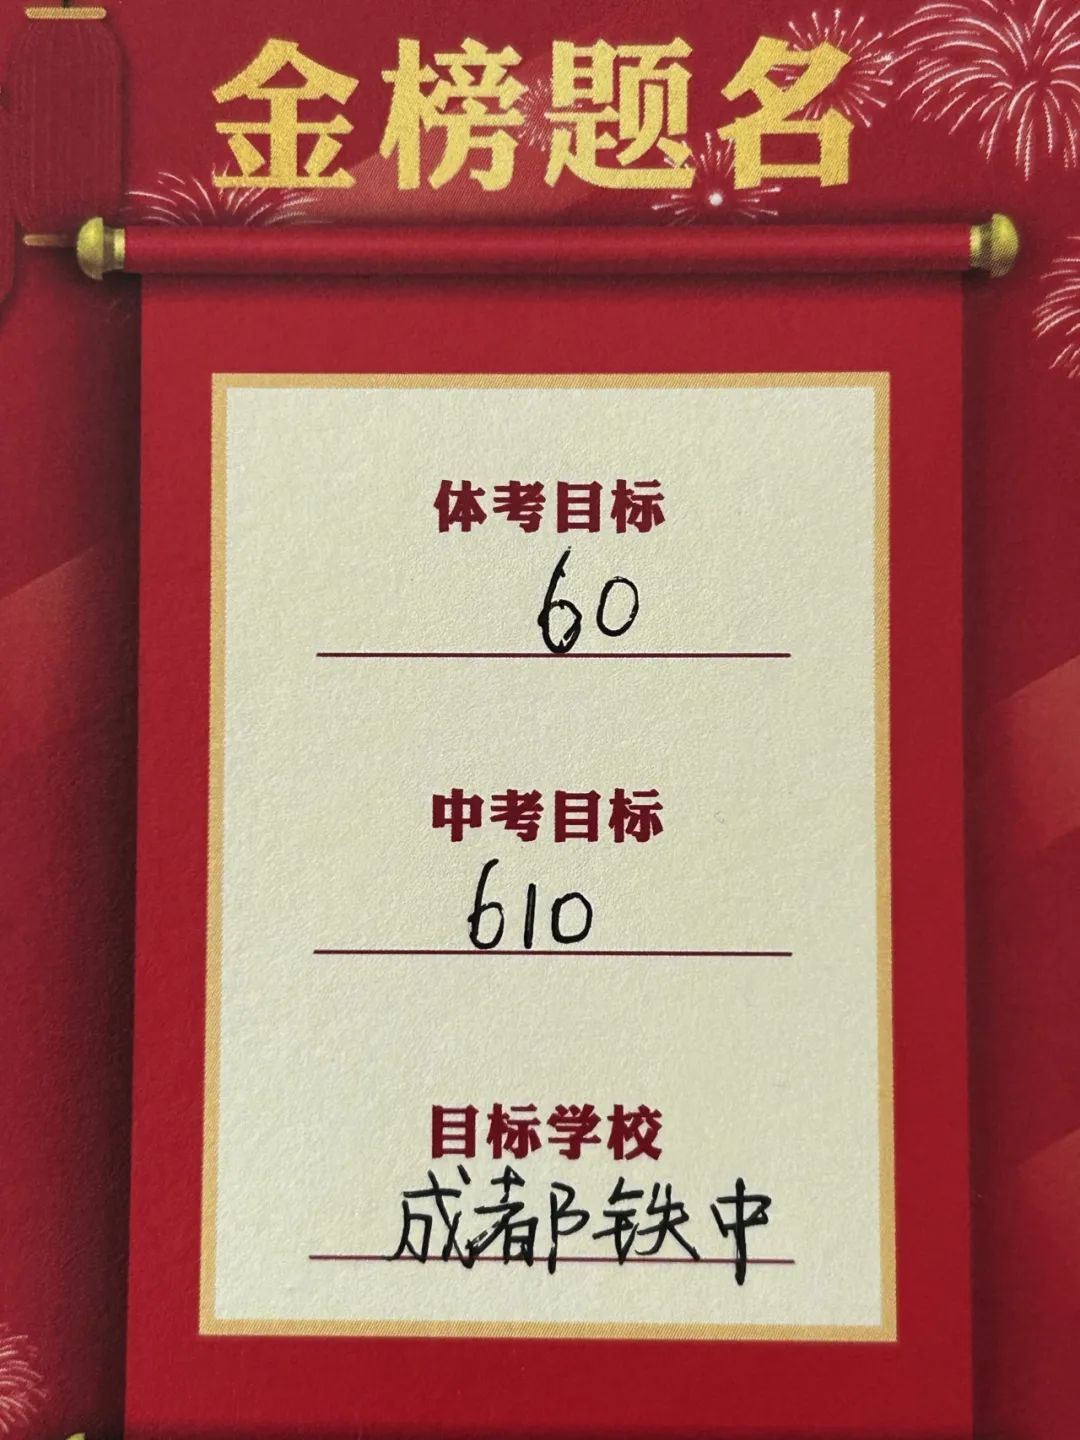 金榜题名
体考目标
60
中考目标
610
目标学校
成都铁中